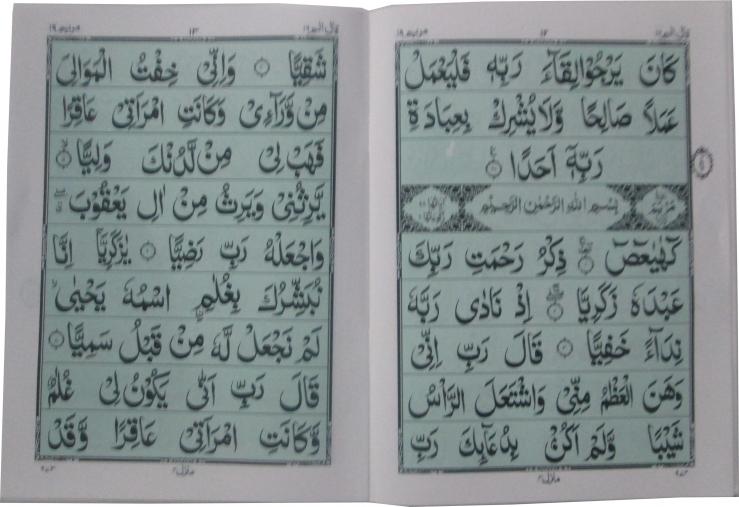 كَانَ يَرْجُوْا لِقَآءَ رَبِّهٖ فَلْيَعْمَلْ
عَمَلًا صَالِحًا وَّلَا يُشْرِكْ بِعِبَادَةِ
رَبِّهٖٓ اَحَدًا
مَرْيَم
بِسْمِ اللهِ الرَّحْمٰنِ الرَّحِيْمِ
كٓهٰيٰعٓصٓ ذِكْرُ رَحْمَتِ رَبِّكَ
عَبْدَهٗ زَكَرِيَّا اِذْ نَادٰى رَبَّهٗ
نِدَآءً خَفِيًّا قَالَ رَبِّ اِنِّيْ
وَهَنَ الْعَظْمُ مِنِّيْ وَاشْتَعَلَ الرَّاْسُ
شَيْبًا وَّلَمْ اَكُنْۢ بِدُعَآئِكَ رَبِّ
شَقِيًّا وَاِنِّيْ خِفْتُ الْمَوَالِيَ
مِنْ وَّرَآءِيْ وَكَانَتِ امْرَاَتِيْ عَاقِرًا
فَهَبْ لِيْ مِنْ لَّدُنْكَ وَلِيًّا
يَّرِثُنِيْ وَيَرِثُ مِنْ اٰلِ يَعْقُوْبَ
وَاجْعَلْهُ رَبِّ رَضِيًّا يٰزَكَرِيَّآ اِنَّا
نُبَشِّرُكَ بِغُلٰمِ اِۨسْمُهٗ يَحْيٰى
لَمْ نَجْعَلْ لَّهٗ مِنْ قَبْلُ سَمِيًّا
قَالَ رَبِّ اَنّٰى يَكُوْنُ لِيْ غُلٰمٌ
وَّكَانَتِ امْرَاَتِيْ عَاقِرًا وَّقَدْ